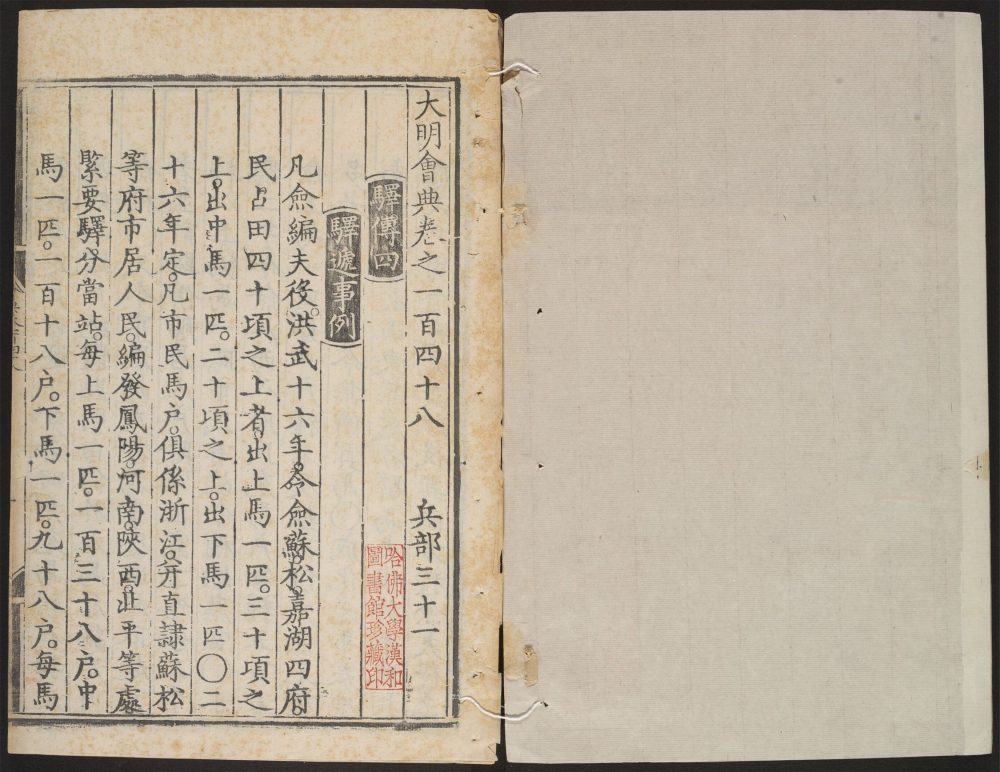 大明會典卷之一百四十八　兵部三十一
驛傳四
驛遞事例
凡僉編夫役。洪武十六年。令僉蘇。松。嘉湖四府。
民占田四十頃之上者。出上馬一匹。三十頃之
上。出中馬一匹。二十頃之上。出下馬一匹〇二
十六年定。凡市民馬戶。俱係浙江。并直隸蘇松
等府市居人民。編發鳳陽。河南。陝西。北平等處
緊要驛。分當站。每上馬一匹。一百三十八戶。中
馬一匹。一百十八戶。下馬一匹。九十八戶。每馬
哈佛大學漢和
圖書館珍藏印